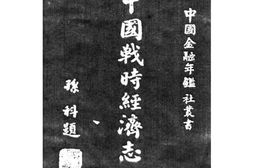 中國金融年鑑社叢書
中國戰時經濟志
孫科題